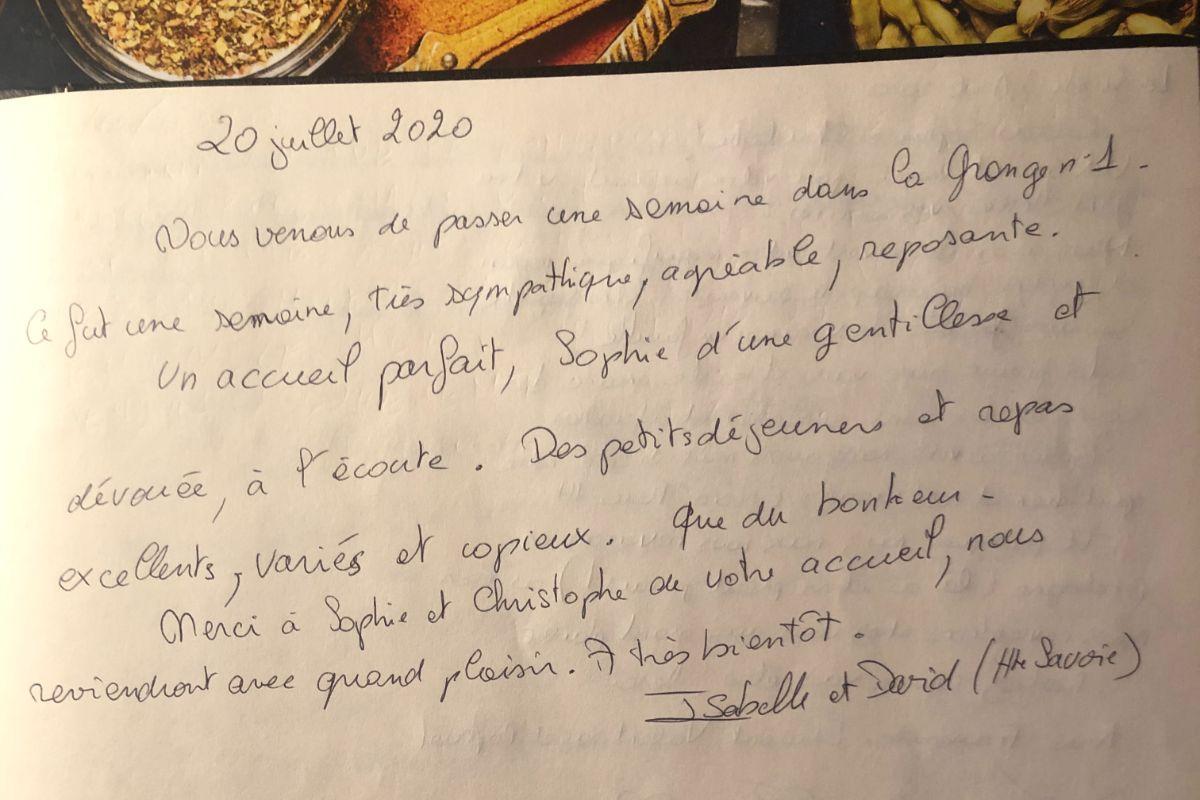 20 juillet 2020
Nous venons de passer une semaine dans la Grange n°1.
Ce fut une semaine, très sympathique, agréable, reposante.
Un accueil parfait, Sophie d'une gentillesse et
dévouée, à l'écoute. Des petits déjeuners et repas
excellents, variés et copieux. Que du bonheur -
Merci à Sophie et Christophe de votre accueil, nous
reviendront avec quand plaisir. A très bientôt.
Isabelle et David (Hte Savoie)